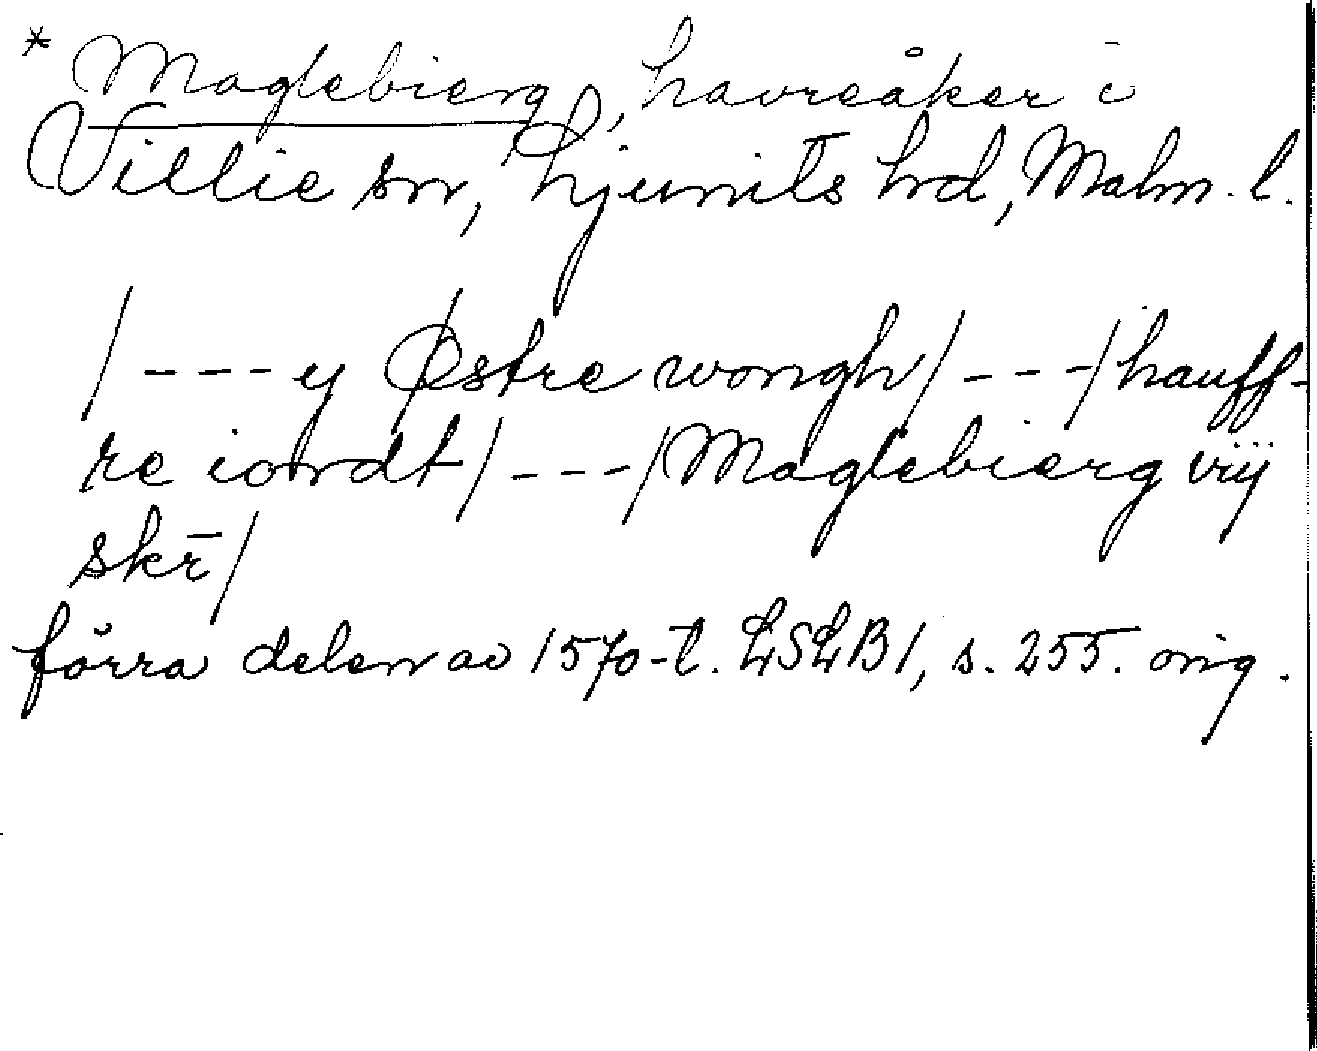 * Maglebierg, havreåker i
Villie sn, Ljunits hd, Malm. l.
/---y Østre wongh/---/hauff-
re iordt/---/Maglebierg vÿ
skr̄/
förra delen av 1570-t. LSLB1, s. 255. orig.